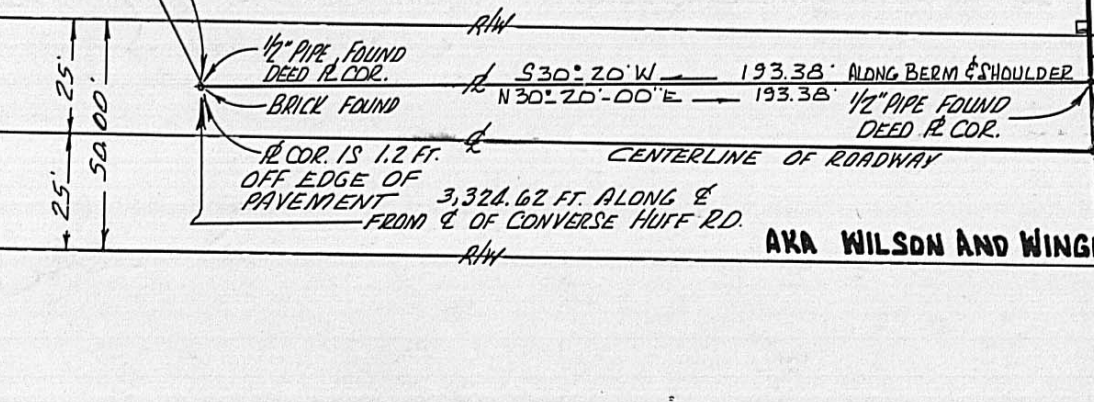 R/W
1/2" PIPE FOUND
DEED PL COR.
BRICK FOUND
PL
S30°-20'W 193.38' ALONG BERM & SHOULDER
N30°-20'-00"E 193.38'
1/2" PIPE FOUND
DEED PL COR.
25'
50.00
25'
CL
CENTERLINE OF ROADWAY
PL COR. IS 1.2 FT.
OFF EDGE OF
PAVEMENT
3,324.62 FT. ALONG CL
FROM CL OF CONVERSE HUFF RD.
R/W
AKA WILSON AND